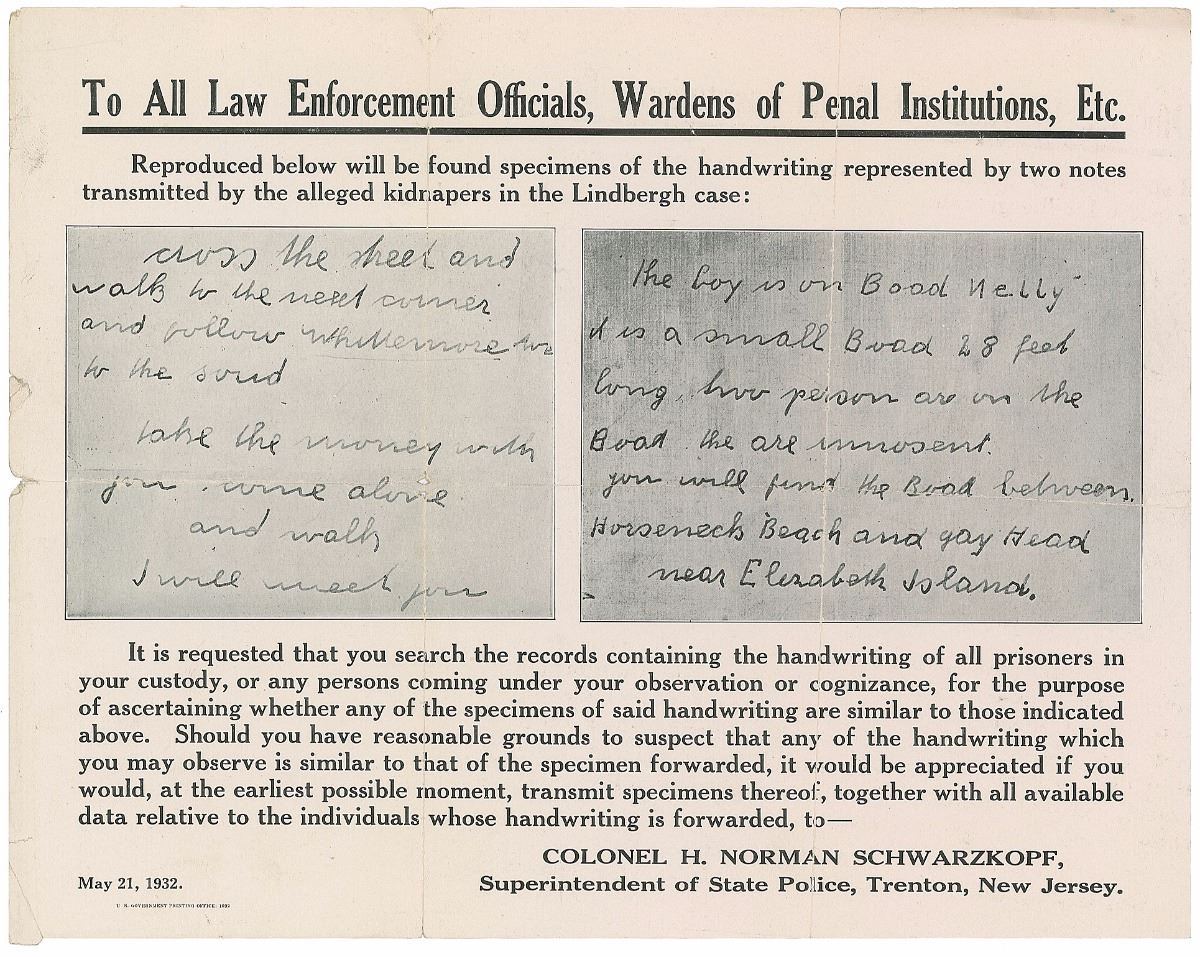 To All Law Enforcement Officials, Wardens of Penal Institutions, Etc.
Reproduced below will be found specimens of the handwriting represented by two notes
transmitted by the alleged kidnapers in the Lindbergh case:
cross the street and
walk to the next corner
and follow whittemore
to the soud
take the money with
you. come alone
and walk
I will meet you
the boy is on Boad Nelly
it is a small Boad 28 feet
long, two person are on the
Boad the are innosent.
you will find the Boad between
Horseneck Beach and gay Head
near Elizabeth Island.
It is requested that you search the records containing the handwriting of all prisoners in
your custody, or any persons coming under your observation or cognizance, for the purpose
of ascertaining whether any of the specimens of said handwriting are similar to those indicated
above. Should you have reasonable grounds to suspect that any of the handwriting which
you may observe is similar to that of the specimen forwarded, it would be appreciated if you
would, at the earliest possible moment, transmit specimens thereof, together with all available
data relative to the individuals whose handwriting is forwarded, to—
COLONEL H. NORMAN SCHWARZKOPF,
Superintendent of State Police, Trenton, New Jersey.
May 21, 1932.
U. S. GOVERNMENT PRINTING OFFICE: 1932